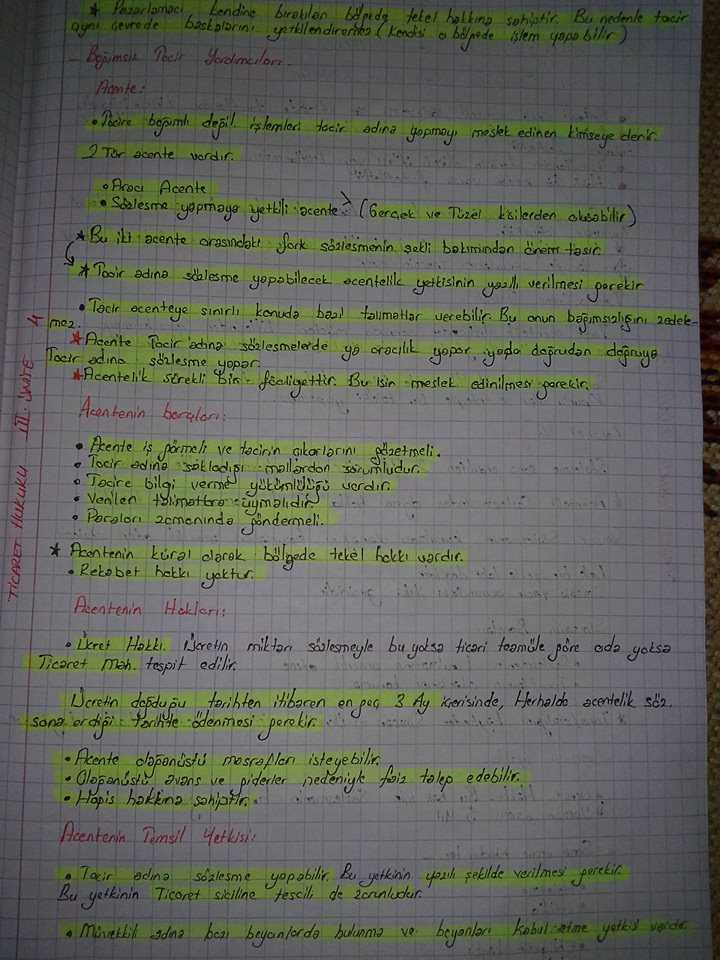 * Pazarlamacı kendine bırakılan bölgede tekel hakkına sahiptir. Bu nedenle tacir
aynı çevrede başkalarını yetkilendiremez (Kendisi o bölgede işlem yapabilir)
- Bağımsız Tacir Yardımcıları -
Acente:
• Tacire bağımlı değil. işlemleri tacir adına yapmayı meslek edinen kimseye denir.
2 Tür acente vardır.
• Aracı Acente
• Sözleşme yapmaya yetkili acente > (Gerçek ve Tüzel kişilerden oluşabilir)
* Bu iki acente arasındaki fark sözleşmenin şekli bakımından önem taşır.
* Tacir adına sözleşme yapabilecek acentelik yetkisinin yazılı verilmesi gerekir
• Tacir acenteye sınırlı konuda bazı talimatlar verebilir. Bu onun bağımsızlığını zedele-
mez.
* Acente Tacir adına sözleşmelerde ya aracılık yapar, yada doğrudan doğruya
Tacir adına sözleşme yapar.
* Acentelik sürekli bir faaliyettir. Bu işin meslek edinilmesi gerekir.
Acentenin borçları:
• Acente iş görmeli ve tacirin çıkarlarını gözetmeli.
• Tacir adına sakladığı mallardan sorumludur.
• Tacire bilgi verme yükümlülüğü vardır.
• Verilen talimatlara uymalıdır.
• Paraları zamanında göndermeli.
* Acentenin kural olarak bölgede tekel hakkı vardır.
• Rekabet hakkı yoktur.
Acentenin Hakları:
• Ücret Hakkı. Ücretin miktarı sözleşmeyle bu yoksa ticari teamüle göre oda yoksa
Ticaret Mah. tespit edilir.
Ücretin doğduğu tarihten itibaren en geç 3 Ay içerisinde, Herhalde acentelik söz.
sona erdiği tarihte ödenmesi gerekir.
• Acente olağanüstü masrafları isteyebilir.
• Olağanüstü avans ve giderler nedeniyle faiz talep edebilir.
• Hapis hakkına sahiptir.
Acentenin Temsil Yetkisi:
• Tacir adına sözleşme yapabilir. Bu yetkinin yazılı şekilde verilmesi gerekir.
Bu yetkinin Ticaret siciline tescili de zorunludur.
• Müvekkili adına bazı beyanlarda bulunma ve beyanları kabul etme yetkisi vardır.
TİCARET HUKUKU III. ÜNİTE 4